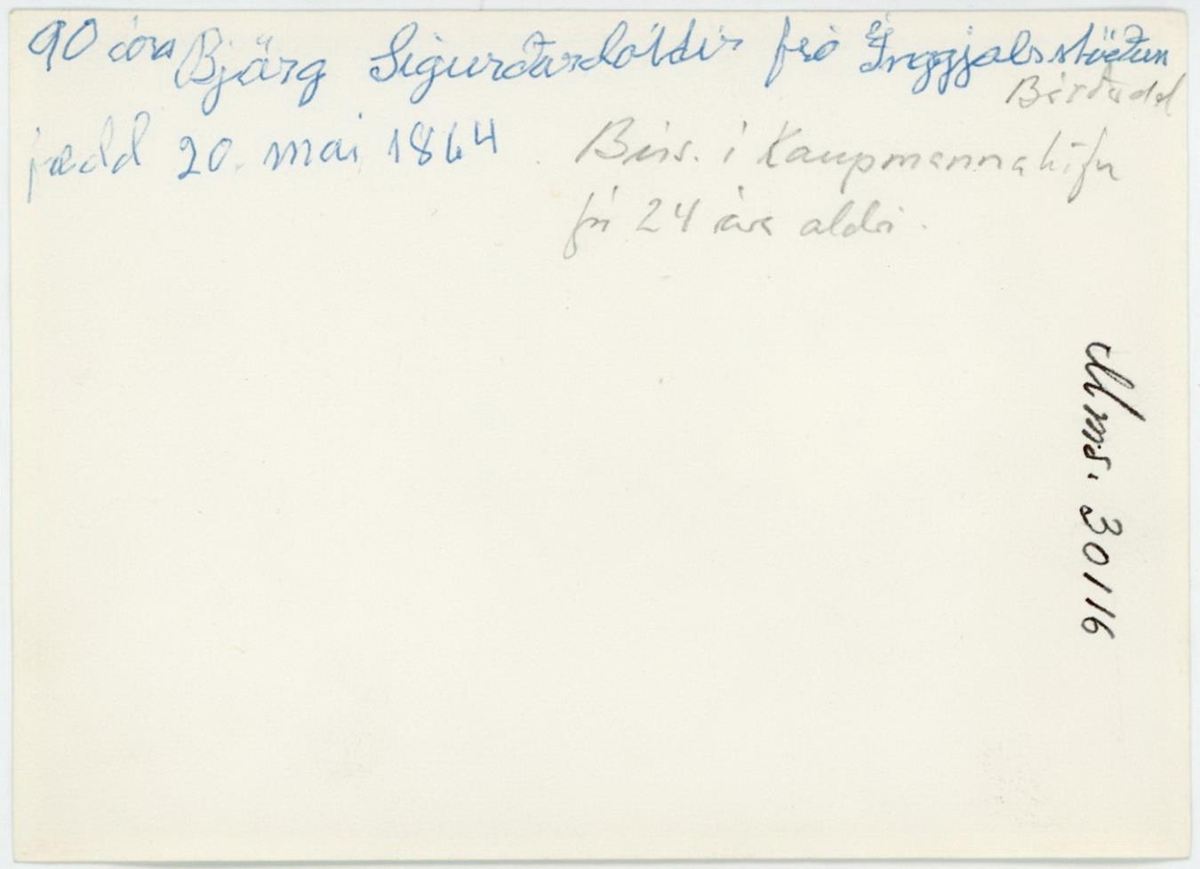 90 ára Björg Sigurðardóttir frá Ingjaldsstöðum
Bárðardal
fædd 20. mai 1864
Bús. í Kaupmannahöfn
frá 24 ára aldri.
Mms. 30116